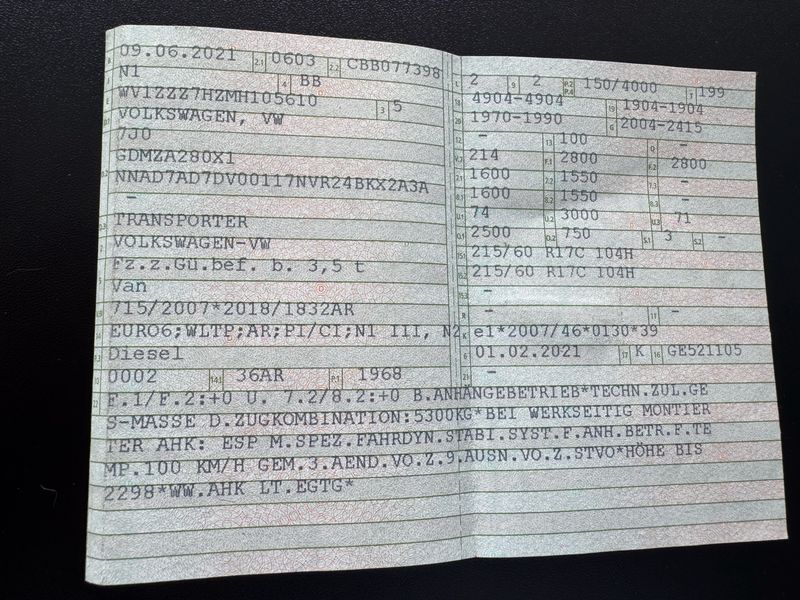 09.06.2021 2.1 0603 2.2 CBB077398
N1 4 BB
WV1ZZZ7HZMH105610 3 5
VOLKSWAGEN, VW
7J0
GDMZA280X1
NNAD7AD7DV00117NVR24BKX2A3A
-
TRANSPORTER
VOLKSWAGEN-VW
Fz.z.Gü.bef. b. 3,5 t
Van
715/2007*2018/1832AR
EURO6;WLTP;AR;PI/CI;N1 III, N2
Diesel
0002 14.1 36AR P.1 1968
L 2 9 2 P.2 P.4 150/4000 T 199
18 4904-4904 19 1904-1904
20 1970-1990 G 2004-2415
12 - 13 100 Q -
V.7 214 F.1 2800 F.2 2800
7.1 1600 7.2 1550 7.3 -
8.1 1600 8.2 1550 8.3 -
U.1 74 U.2 3000 U.3 71
O.1 2500 O.2 750 S.1 3 S.2 -
15.1 215/60 R17C 104H
15.2 215/60 R17C 104H
15.3 -
R - 11 -
K e1*2007/46*0130*39
6 01.02.2021 17 K 16 GE521105
21 -
F.1/F.2:+0 U. 7.2/8.2:+0 B.ANHÄNGEBETRIEB*TECHN.ZUL.GE
S-MASSE D.ZUGKOMBINATION:5300KG*BEI WERKSEITIG MONTIER
TER AHK: ESP M.SPEZ.FAHRDYN.STABI.SYST.F.ANH.BETR.F.TE
MP.100 KM/H GEM.3.AEND.VO.Z.9.AUSN.VO.Z.STVO*HÖHE BIS
2298*WW.AHK LT.EGTG*